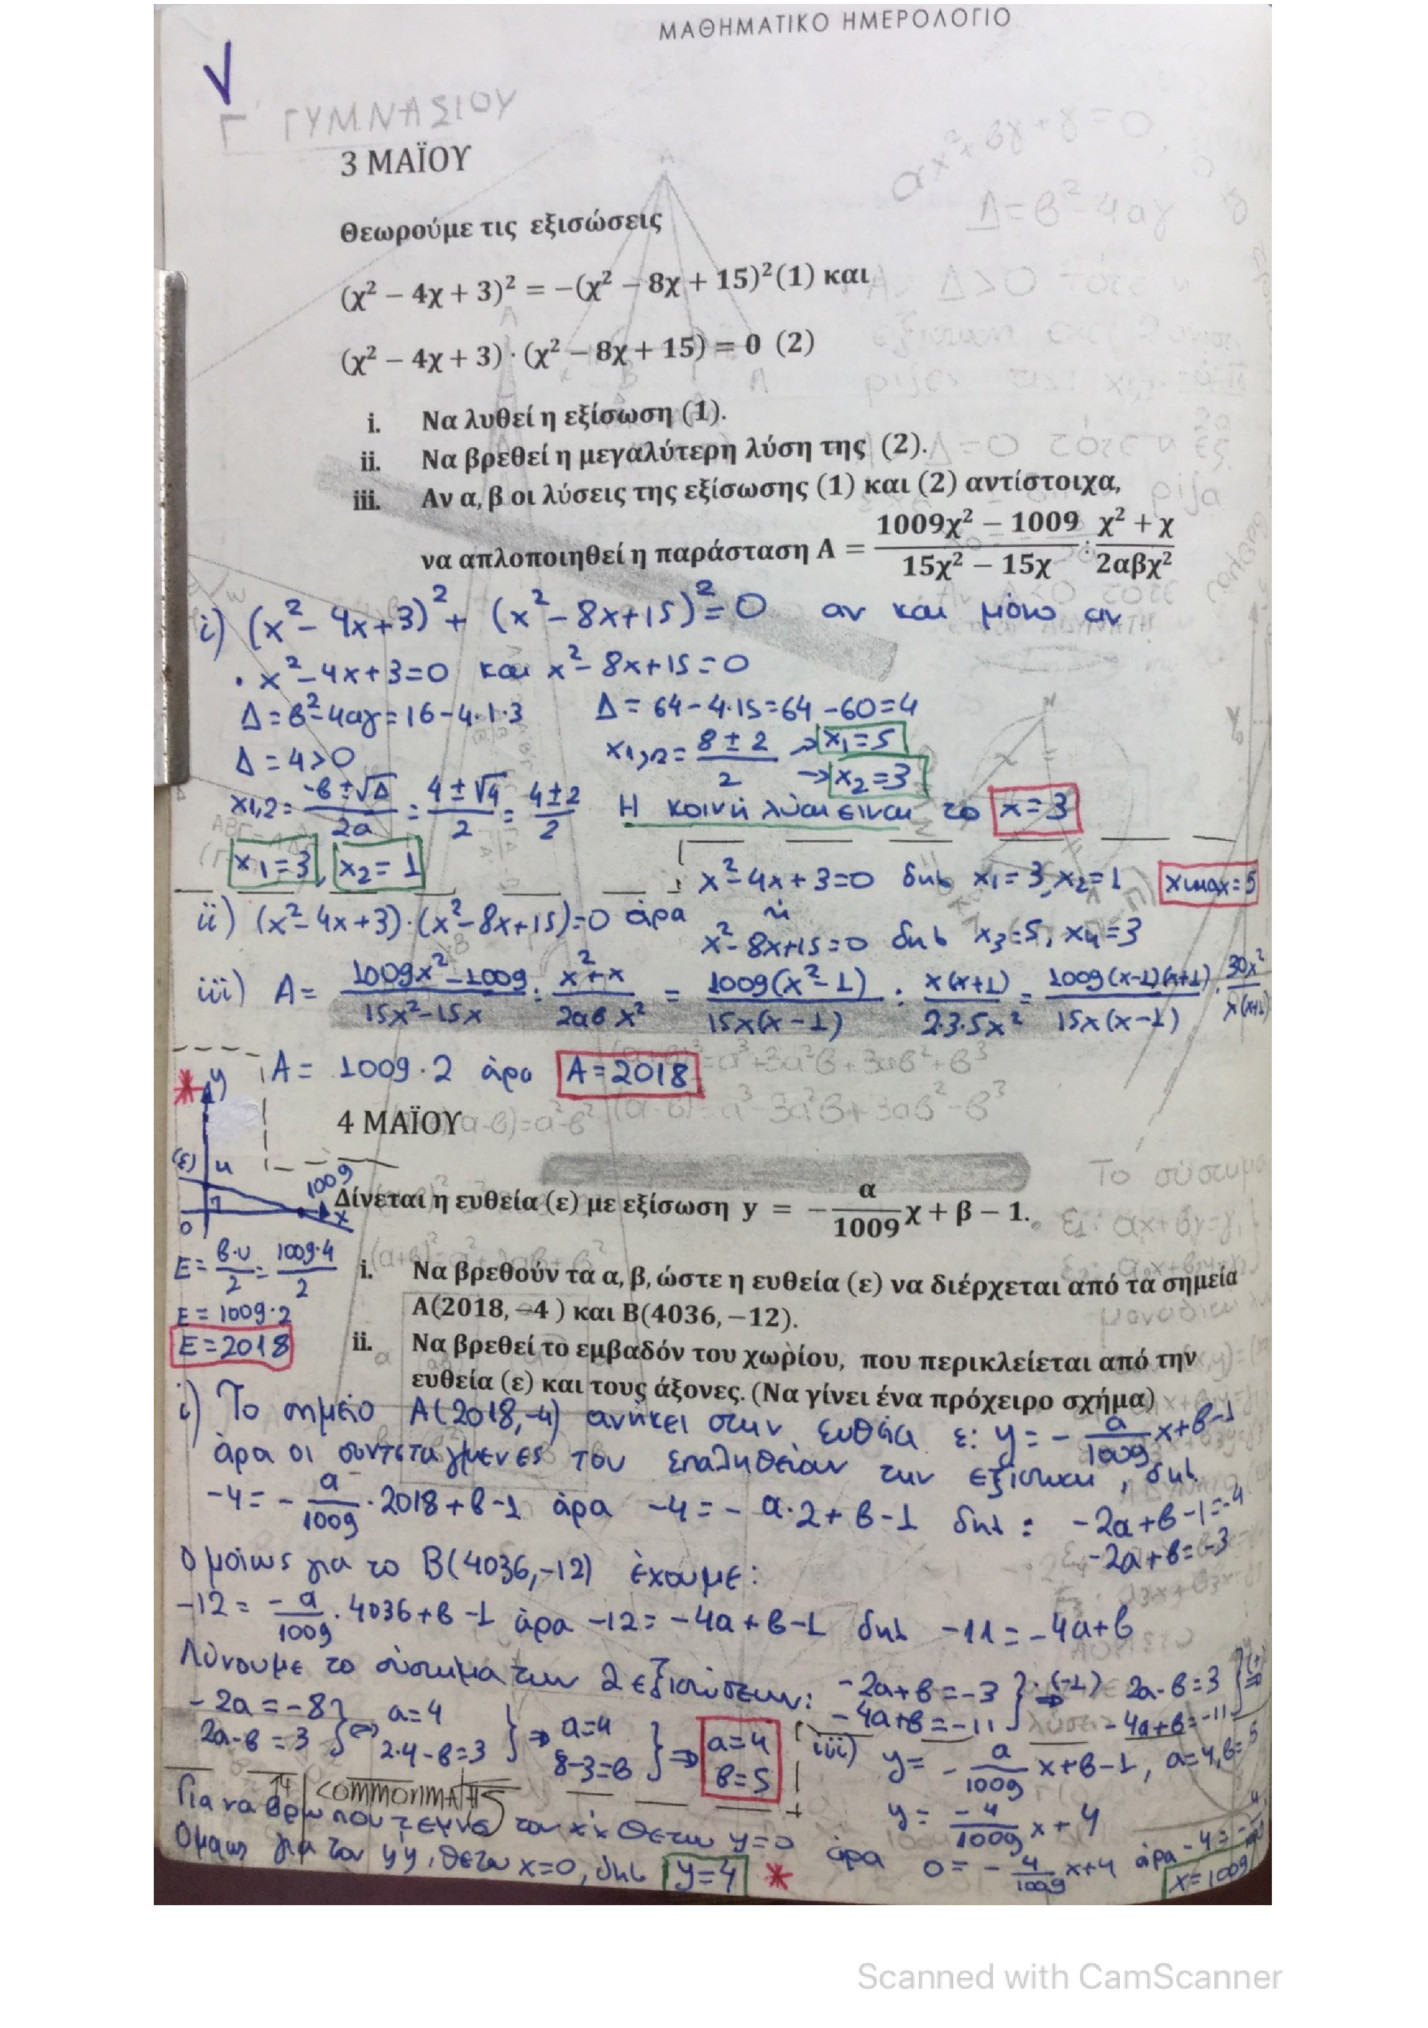 ΜΑΘΗΜΑΤΙΚΟ ΗΜΕΡΟΛΟΓΙΟ
Γ' ΓΥΜΝΑΣΙΟΥ
3 ΜΑΪΟΥ
Θεωρούμε τις εξισώσεις
(χ² − 4χ + 3)² = −(χ² − 8χ + 15)² (1) και
(χ² − 4χ + 3) · (χ² − 8χ + 15) = 0 (2)
i. Να λυθεί η εξίσωση (1).
ii. Να βρεθεί η μεγαλύτερη λύση της (2).
iii. Αν α, β οι λύσεις της εξίσωσης (1) και (2) αντίστοιχα,
να απλοποιηθεί η παράσταση Α = (1009χ² − 1009)/(15χ² − 15χ) : (χ² + χ)/(2αβχ²)
i) (x² − 4x + 3)² + (x² − 8x + 15)² = 0 αν και μόνο αν
· x² − 4x + 3 = 0 και x² − 8x + 15 = 0
Δ = β² − 4αγ = 16 − 4·1·3 Δ = 64 − 4·15 = 64 − 60 = 4
Δ = 4 > 0 x1,2 = (8 ± 2)/2 → x₁ = 5
→ x₂ = 3
x1,2 = (−β ± √Δ)/2α = (4 ± √4)/2 = (4 ± 2)/2 Η κοινή λύση είναι το x = 3
x₁ = 3, x₂ = 1
x² − 4x + 3 = 0 δηλ x₁ = 3, x₂ = 1 xmax = 5
ii) (x² − 4x + 3)·(x² − 8x + 15) = 0 άρα ή
x² − 8x + 15 = 0 δηλ x₃ = 5, x₄ = 3
iii) A = (1009x² − 1009)/(15x² − 15x) : (x² + x)/(2αβx²) = 1009(x² − 1)/15x(x − 1) : x(x+1)/2·3·5x² = 1009(x−1)(x+1)/15x(x−1) · 30x²/x(x+1)
A = 1009·2 άρα A = 2018
4 ΜΑΪΟΥ
y
(ε) 4
1009
0 x
Δίνεται η ευθεία (ε) με εξίσωση y = −(α/1009)χ + β − 1.
E = β·υ/2 = 1009·4/2
E = 1009·2
E = 2018
i. Να βρεθούν τα α, β, ώστε η ευθεία (ε) να διέρχεται από τα σημεία
Α(2018, −4) και Β(4036, −12).
ii. Να βρεθεί το εμβαδόν του χωρίου, που περικλείεται από την
ευθεία (ε) και τους άξονες. (Να γίνει ένα πρόχειρο σχήμα)
i) Το σημείο A(2018, −4) ανήκει στην ευθεία ε: y = −(α/1009)x + β − 1
άρα οι συντεταγμένες του επαληθεύουν την εξίσωση, δηλ
−4 = −(α/1009)·2018 + β − 1 άρα −4 = −α·2 + β − 1 δηλ: −2α + β − 1 = −4
−2α + β = −3
Ομοίως για το B(4036, −12) έχουμε:
−12 = (−α/1009)·4036 + β − 1 άρα −12 = −4α + β − 1 δηλ −11 = −4α + β
Λύνουμε το σύστημα των 2 εξισώσεων: −2α + β = −3 } ·(−1) ⇒ 2α − β = 3 } (+)
−4α + β = −11 −4α + β = −11 ⇒
−2α = −8 } α = 4 } ⇒ α = 4 } ⇒ α = 4
2α − β = 3 } ⇔ 2·4 − β = 3 8 − 3 = β β = 5
iii) y = −(α/1009)x + β − 1, α = 4, β = 5
y = (−4/1009)x + 4
COMMONMATHS
Για να βρω που τέμνει τον x'x θέτω y = 0 άρα 0 = −(4/1009)x + 4 άρα −4 =
x = 1009
Όμως για τον y'y, θέτω x = 0, δηλ y = 4 *
Scanned with CamScanner